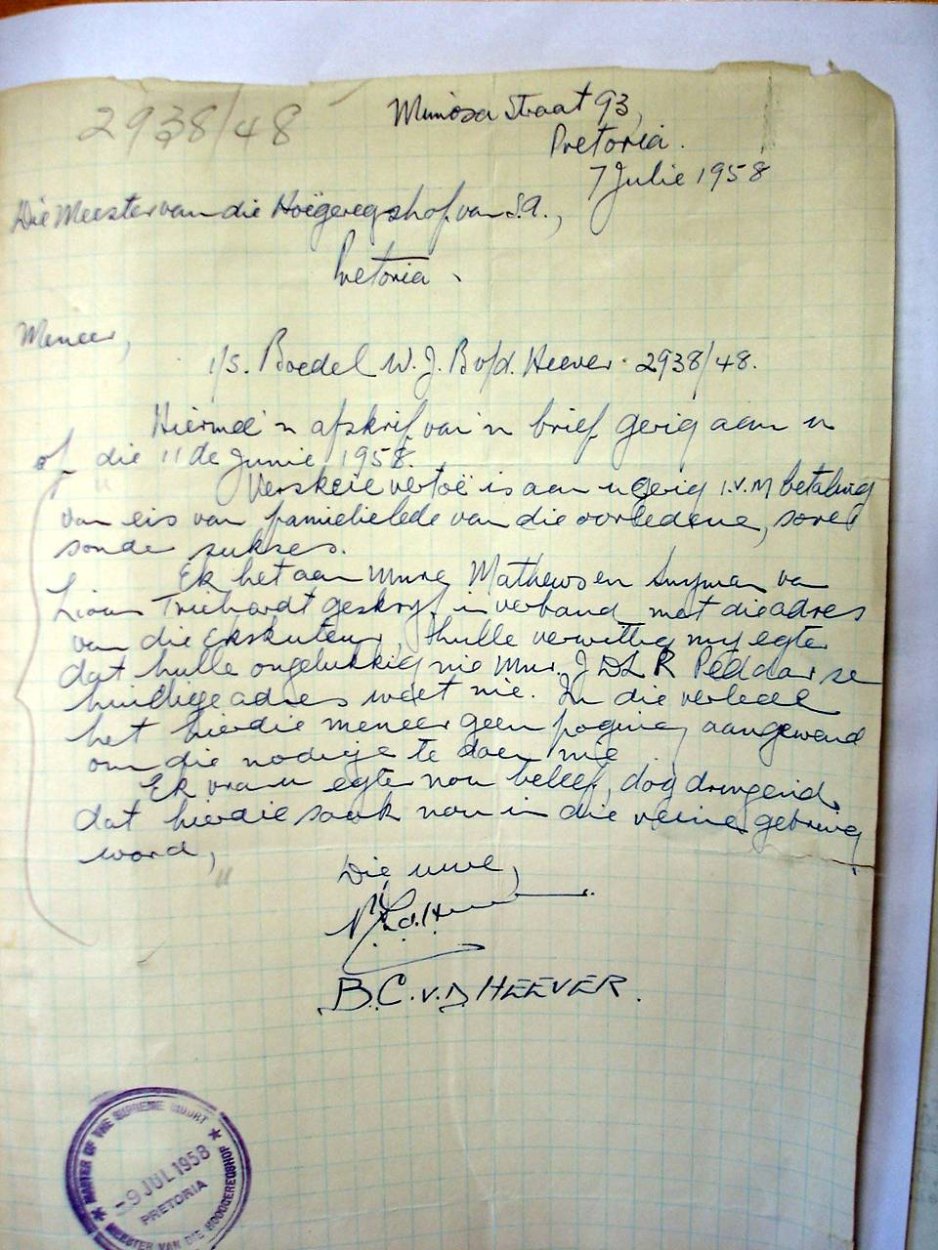 2938/48
Mimosa Straat 93,
Pretoria.
7 Julie 1958
Die Meester van die Hoëgeregshof van S.A.,
Pretoria.
Meneer,
i/s. Boedel W. J. B v/d. Heever. 2938/48.
Hiermee 'n afskrif van 'n brief gerig aan u
op die 11de Junie 1958.
" Verskeie vertoë is aan u gerig i.v.m betaling
van eis van familielede van die oorledene, sover
sonder sukses.
Ek het aan Mnre Mathews en Snyman van
Louis Trichardt geskryf in verband met die adres
van die Eksekuteur, hulle verwittig my egter
dat hulle ongelukkig nie Mnr. J D L R Peddar se
huidige adres weet nie. In die verlede
het hierdie meneer geen poging aangewend
om die nodige te doen nie.
Ek vra u egter nou beleef, dog dringend
dat hierdie saak nou in die reine gebring
word, "
Die uwe,
B.C. v.D HEEVER.
MASTER OF THE SUPREME COURT
-9 JUL 1958
PRETORIA
MEESTER VAN DIE HOOGGEREGSHOF